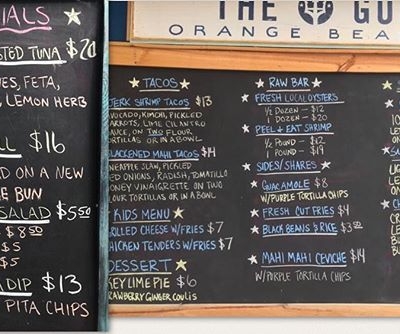 THE GU
ORANGE BEA
IALS
STED TUNA $20
ES, FETA,
LEMON HERB
LL $16
D ON A NEW
BUN
SALAD $5.50
$8.50
$5
$5
DIP $13
PITA CHIPS
TACOS
JERK SHRIMP TACOS $13
AVOCADO, KIMCHI, PICKLED
CARROTS, LIME CILANTRO
SAUCE, ON TWO FLOUR
TORTILLAS OR IN A BOWL
BLACKENED MAHI TACOS $14
PINEAPPLE SLAW, PICKLED
RED ONIONS, RADISH, TOMATILLO
HONEY VINAIGRETTE ON TWO
FLOUR TORTILLAS OR IN A BOWL
KIDS MENU
GRILLED CHEESE W/FRIES $7
CHICKEN TENDERS W/FRIES $7
DESSERT
KEY LIME PIE $6
STRAWBERRY GINGER COULIS
RAW BAR
FRESH LOCAL OYSTERS
1/2 DOZEN - $12
1 DOZEN - $20
PEEL & EAT SHRIMP
1/2 POUND - $12
1 POUND - $19
SIDES/SHARES
GUACAMOLE $8
W/PURPLE TORTILLA CHIPS
FRESH CUT FRIES $4
BLACK BEANS & RICE $3.50
MAHI MAHI CEVICHE $14
W/PURPLE TORTILLA CHIPS